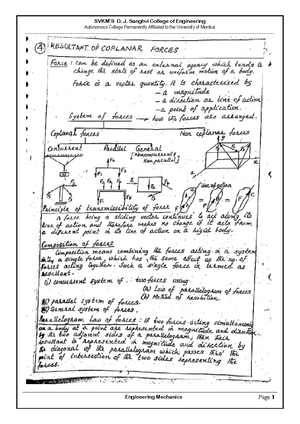 SVKM'S D. J. Sanghvi College of Engineering
Autonomous College Permanently Affiliated to the University of Mumbai
RESULTANT OF COPLANAR FORCES
Force : can be defined as an external agency which tends to
change the state of rest or uniform motion of a body.
Force is a vector quantity. It is characterised by
- a magnitude
- a direction or line of action
- a point of application.
System of forces → how the forces are arranged.
Coplanar forces Non coplanar forces
Concurrent Parallel General
(Nonconcurrent
Nonparallel)
line of action
Principle of transmissibility of force
A force being a sliding vector continues to act along its
line of action and therefore makes no change if it acts from
a different point in its line of action on a rigid body.
Composition of forces
Composition means combining the forces acting in a system
into a single force, which has the same effect as the no. of
forces acting together. Such a single force is termed as
resultant.
(i) concurrent system of - two forces using
(a) Law of parallelogram of forces
(b) Method of resolution.
(ii) parallel system of forces.
(iii) General system of forces.
Parallelogram Law of forces : If two forces acting simultaneously
on a body at a point are represented in magnitude and direction
by the two adjacent sides of a parallelogram, then their
resultant is represented in magnitude and direction by
the diagonal of the parallelogram which passes thro' the
point of intersection of the two sides representing the
forces.
Engineering Mechanics Page 1